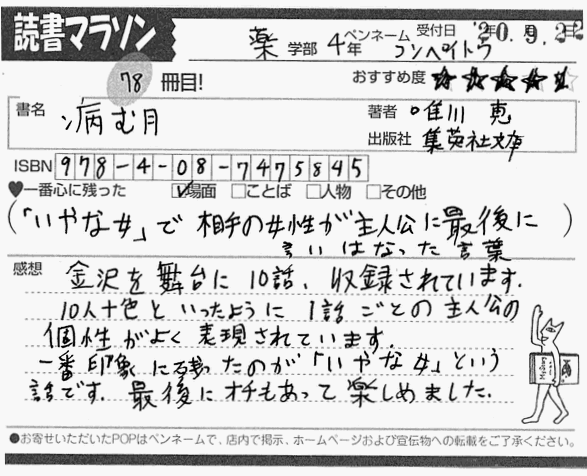 読書マラソン
薬 学部 4年 ペンネーム コンペイトウ 受付日 '20.9.22
78 冊目! おすすめ度 ★★★★★
書名 病む月
著者 唯川 恵
出版社 集英社文庫
ISBN 978-4-08-7475845
♥一番心に残った ☑場面 □ことば □人物 □その他
(「いやな女」で 相手の女性が主人公に最後に
言いはなった言葉)
感想 金沢を舞台に10話、収録されています。
10人十色といったように1話ごとの主人公の
個性がよく表現されています。
一番印象に残ったのが「いやな女」という
話です。最後にオチもあって楽しめました。
●お寄せいただいたPOPはペンネームで、店内で掲示、ホームページおよび宣伝物への転載をご了承ください。